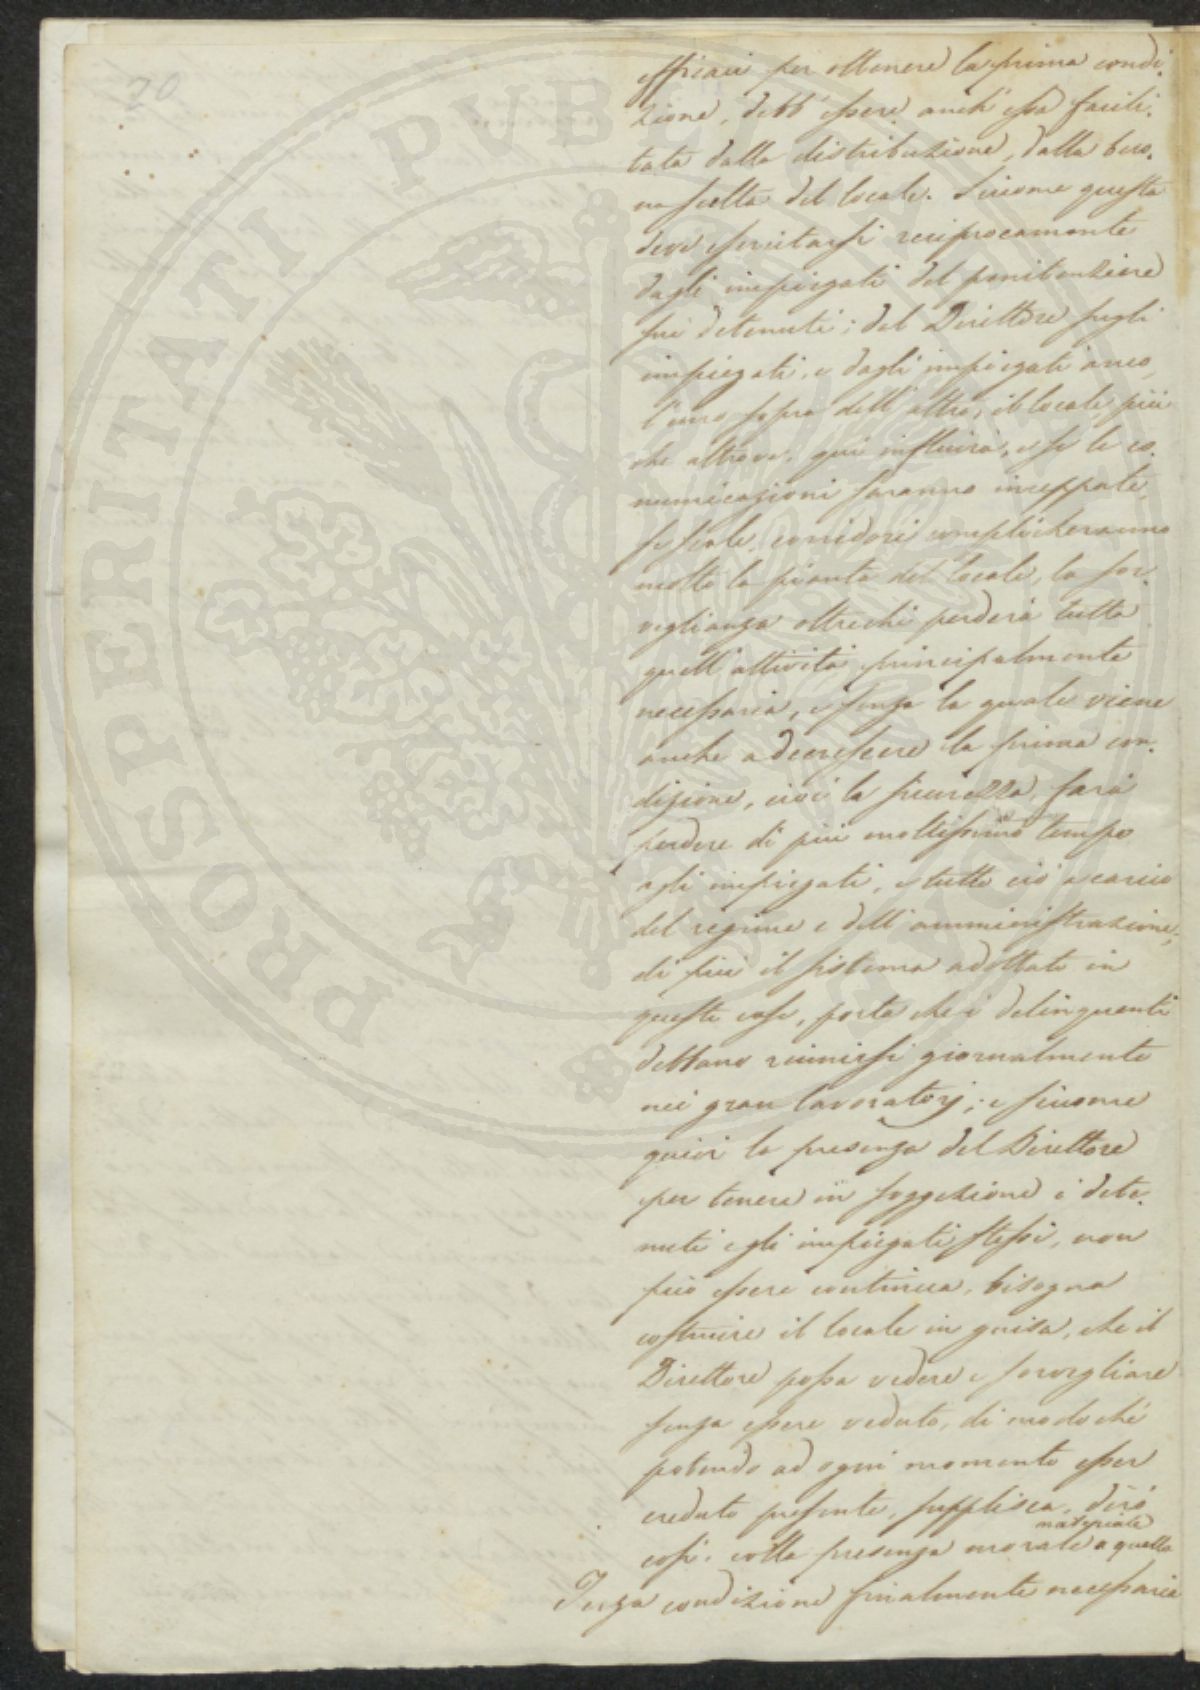 20
efficaci per ottenere la prima condi-
zione, debb' essere anch' essa facili-
tata dalla distribuzione, dalla buo-
na scelta del locale. Siccome questa
deve esercitarsi reciprocamente
dagli impiegati del penitenziere
sui detenuti; dal Direttore sugli
impiegati, e dagli impiegati anco,
l'uno sopra dell' altro, il locale più
che altrove, qui influirà, e se le co-
municazioni saranno inceppate,
se scale, corridori complicheranno
molto la pianta del locale, la sor-
veglianza oltrechè perderà tutta
quell' attività principalmente
necessaria, e senza la quale viene
anche a decrescere la prima con-
dizione, cioè la sicurezza, farà
perdere di più moltissimo tempo
agli impiegati, e tutto ciò a carico
del regime e dell' amministrazione;
di più il sistema adottato in
queste case, porta che i delinquenti
debbano riunirsi giornalmente
nei gran lavoratorj; e siccome
quivi la presenza del Direttore
per tenere in soggezione i dete-
nuti e gli impiegati stessi, non
può essere continua, bisogna
costruire il locale in guisa, che il
Direttore possa vedere e sorvegliare
senza essere veduto, di modo chè
potendo ad ogni momento esser
creduto presente, supplisca, dirò
materiale
così, colla presenza morale a quella
Terza condizione finalmente necessaria
PROSPERITATI PUBLICAE